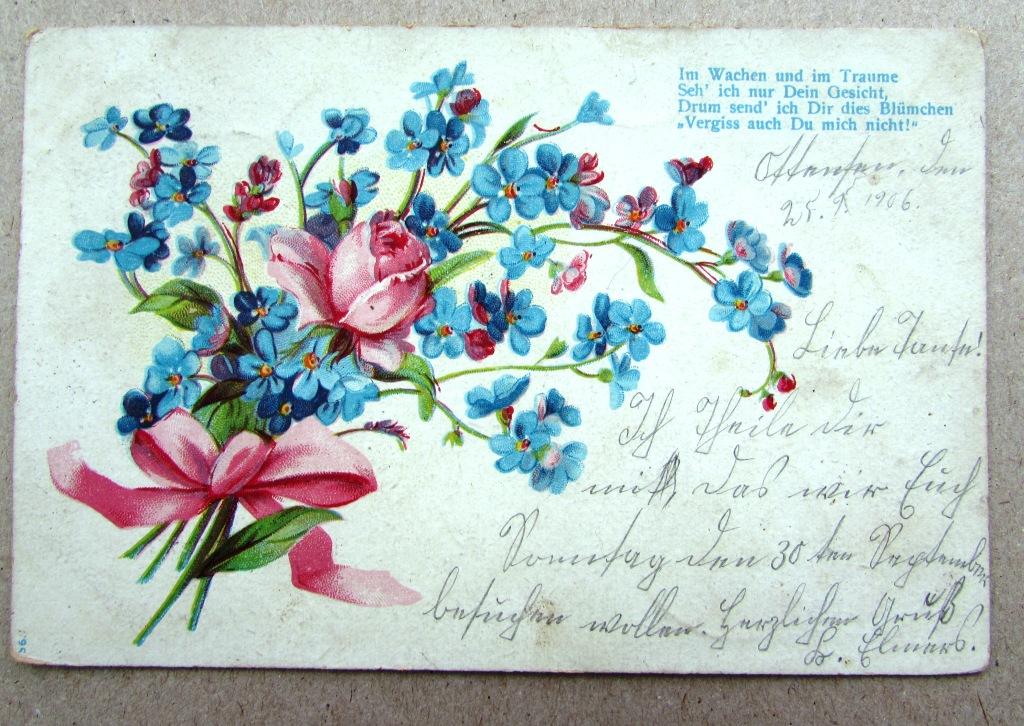 Im Wachen und im Traume
Seh' ich nur Dein Gesicht,
Drum send' ich Dir dies Blümchen
„Vergiss auch Du mich nicht!"
Ottensen, den
25. 9. 1906.
Liebe Tante!
Ich theile dir
mit, das wir Euch
Sonntag den 30ten September
besuchen wollen. Herzlichen Gruß
Elmers.
56.